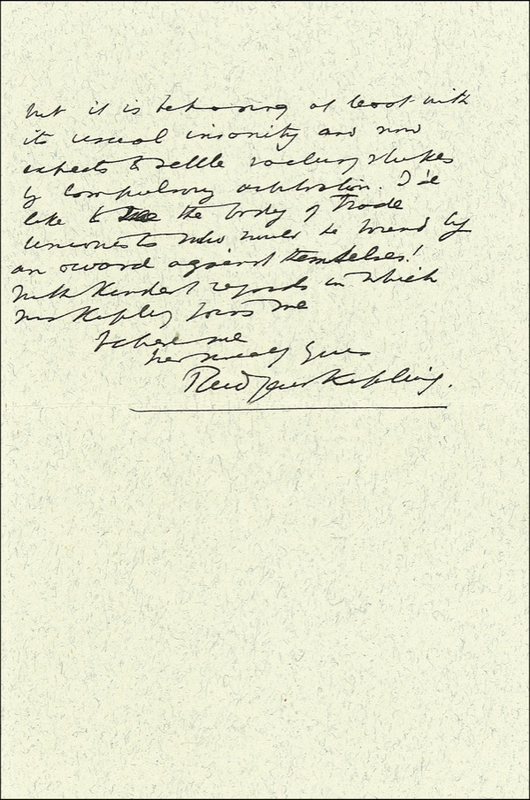 but it is behaving at least with
its usual insanity and now
expects to settle railway strikes
by compulsory arbitration. I'd
like to see the body of Trade
Unionists who would be bound by
an award against themselves!
With kindest regards in which
Mrs Kipling joins me
believe me
very sincerely yours
Rudyard Kipling.